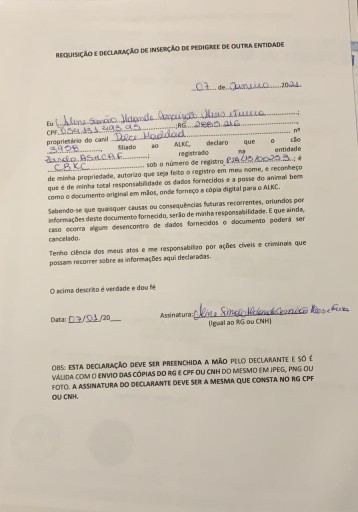 REQUISIÇÃO E DECLARAÇÃO DE INSERÇÃO DE PEDIGREE DE OUTRA ENTIDADE
07 de Janeiro 2021
Eu Aline Simão
CPF RG
proprietário do canil nº
filiado ao ALKC, declaro que o cão
registrado na entidade
CBKC sob o número de registro ; é
de minha propriedade, autorizo que seja feito o registro em meu nome, e reconheço
que é de minha total responsabilidade os dados fornecidos e a posse do animal bem
como o documento original em mãos, onde forneço a cópia digital para o ALKC.
Sabendo-se que quaisquer causas ou consequências futuras recorrentes, oriundos por
informações deste documento fornecido, serão de minha responsabilidade. E que ainda,
caso ocorra algum desencontro de dados fornecidos o documento poderá ser
cancelado.
Tenho ciência dos meus atos e me responsabilizo por ações cíveis e criminais que
possam recorrer sobre as informações aqui declaradas.
O acima descrito é verdade e dou fé
Data: 07/01/20__ Assinatura: Aline Simão
(Igual ao RG ou CNH)
OBS: ESTA DECLARAÇÃO DEVE SER PREENCHIDA A MÃO PELO DECLARANTE E SÓ É
VÁLIDA COM O ENVIO DAS CÓPIAS DO RG E CPF OU CNH DO MESMO EM JPEG, PNG OU
FOTO. A ASSINATURA DO DECLARANTE DEVE SER A MESMA QUE CONSTA NO RG CPF
OU CNH.